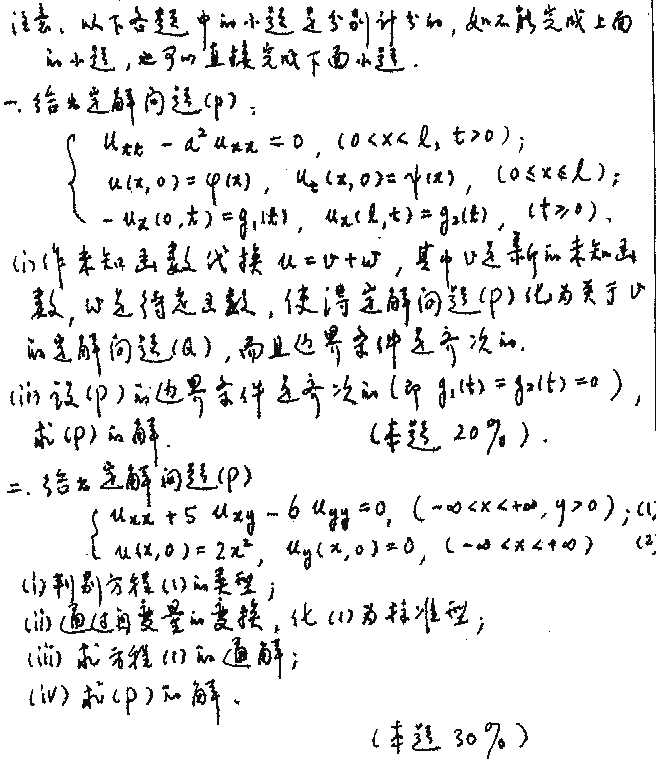 注意、以下各题中的小题是分别计分的,如不能完成上面
的小题,也可以直接完成下面小题.
一. 给出定解问题(P):
u_tt - a² u_xx = 0, (0<x<l, t>0);
u(x,0)=φ(x), u_t(x,0)=ψ(x), (0≤x≤l);
-u_x(0,t)=g₁(t), u_x(l,t)=g₂(t), (t≥0).
(i) 作未知函数代换 u=v+w, 其中v是新的未知函
数, w是待定函数, 使得定解问题(P)化为关于v
的定解问题(Q), 而且边界条件是齐次的.
(ii) 设(P)的边界条件是齐次的(即 g₁(t)=g₂(t)=0),
求(P)的解. (本题 20%).
二. 给出定解问题(P)
u_xx + 5 u_xy - 6 u_yy = 0, (-∞<x<+∞, y>0); (1)
u(x,0)=2x², u_y(x,0)=0, (-∞<x<+∞) (2)
(i) 判别方程(1)的类型;
(ii) 通过自变量的变换, 化(1)为标准型;
(iii) 求方程(1)的通解;
(iv) 求(P)的解.
(本题 30%)